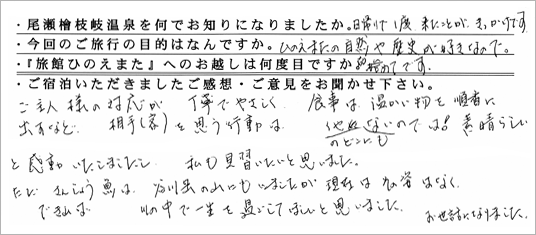 ・尾瀬檜枝岐温泉を何でお知りになりましたか。日帰りで1度 来たことが、きっかけです
・今回のご旅行の目的はなんですか。ひのえまたの自然や歴史が好きなので。
・『旅館ひのえまた』へのお越しは何度目ですか 初めてです。
・ご宿泊いただきましたご感想・ご意見をお聞かせ下さい。
ご主人様の対応が 丁寧でやさしく 食事は 温かい物を順番に
出すなど、 相手(客)を思う行動は 他にないのでは。素晴らしい
のどこにも
と感動いたしました。 私も見習いたいと思いました。
ただ さんしょう魚は、 の山にもいましたが 現在は なく、
できれば 山の中で一生を過ごしてほしいと思いました。 お世話になりました。